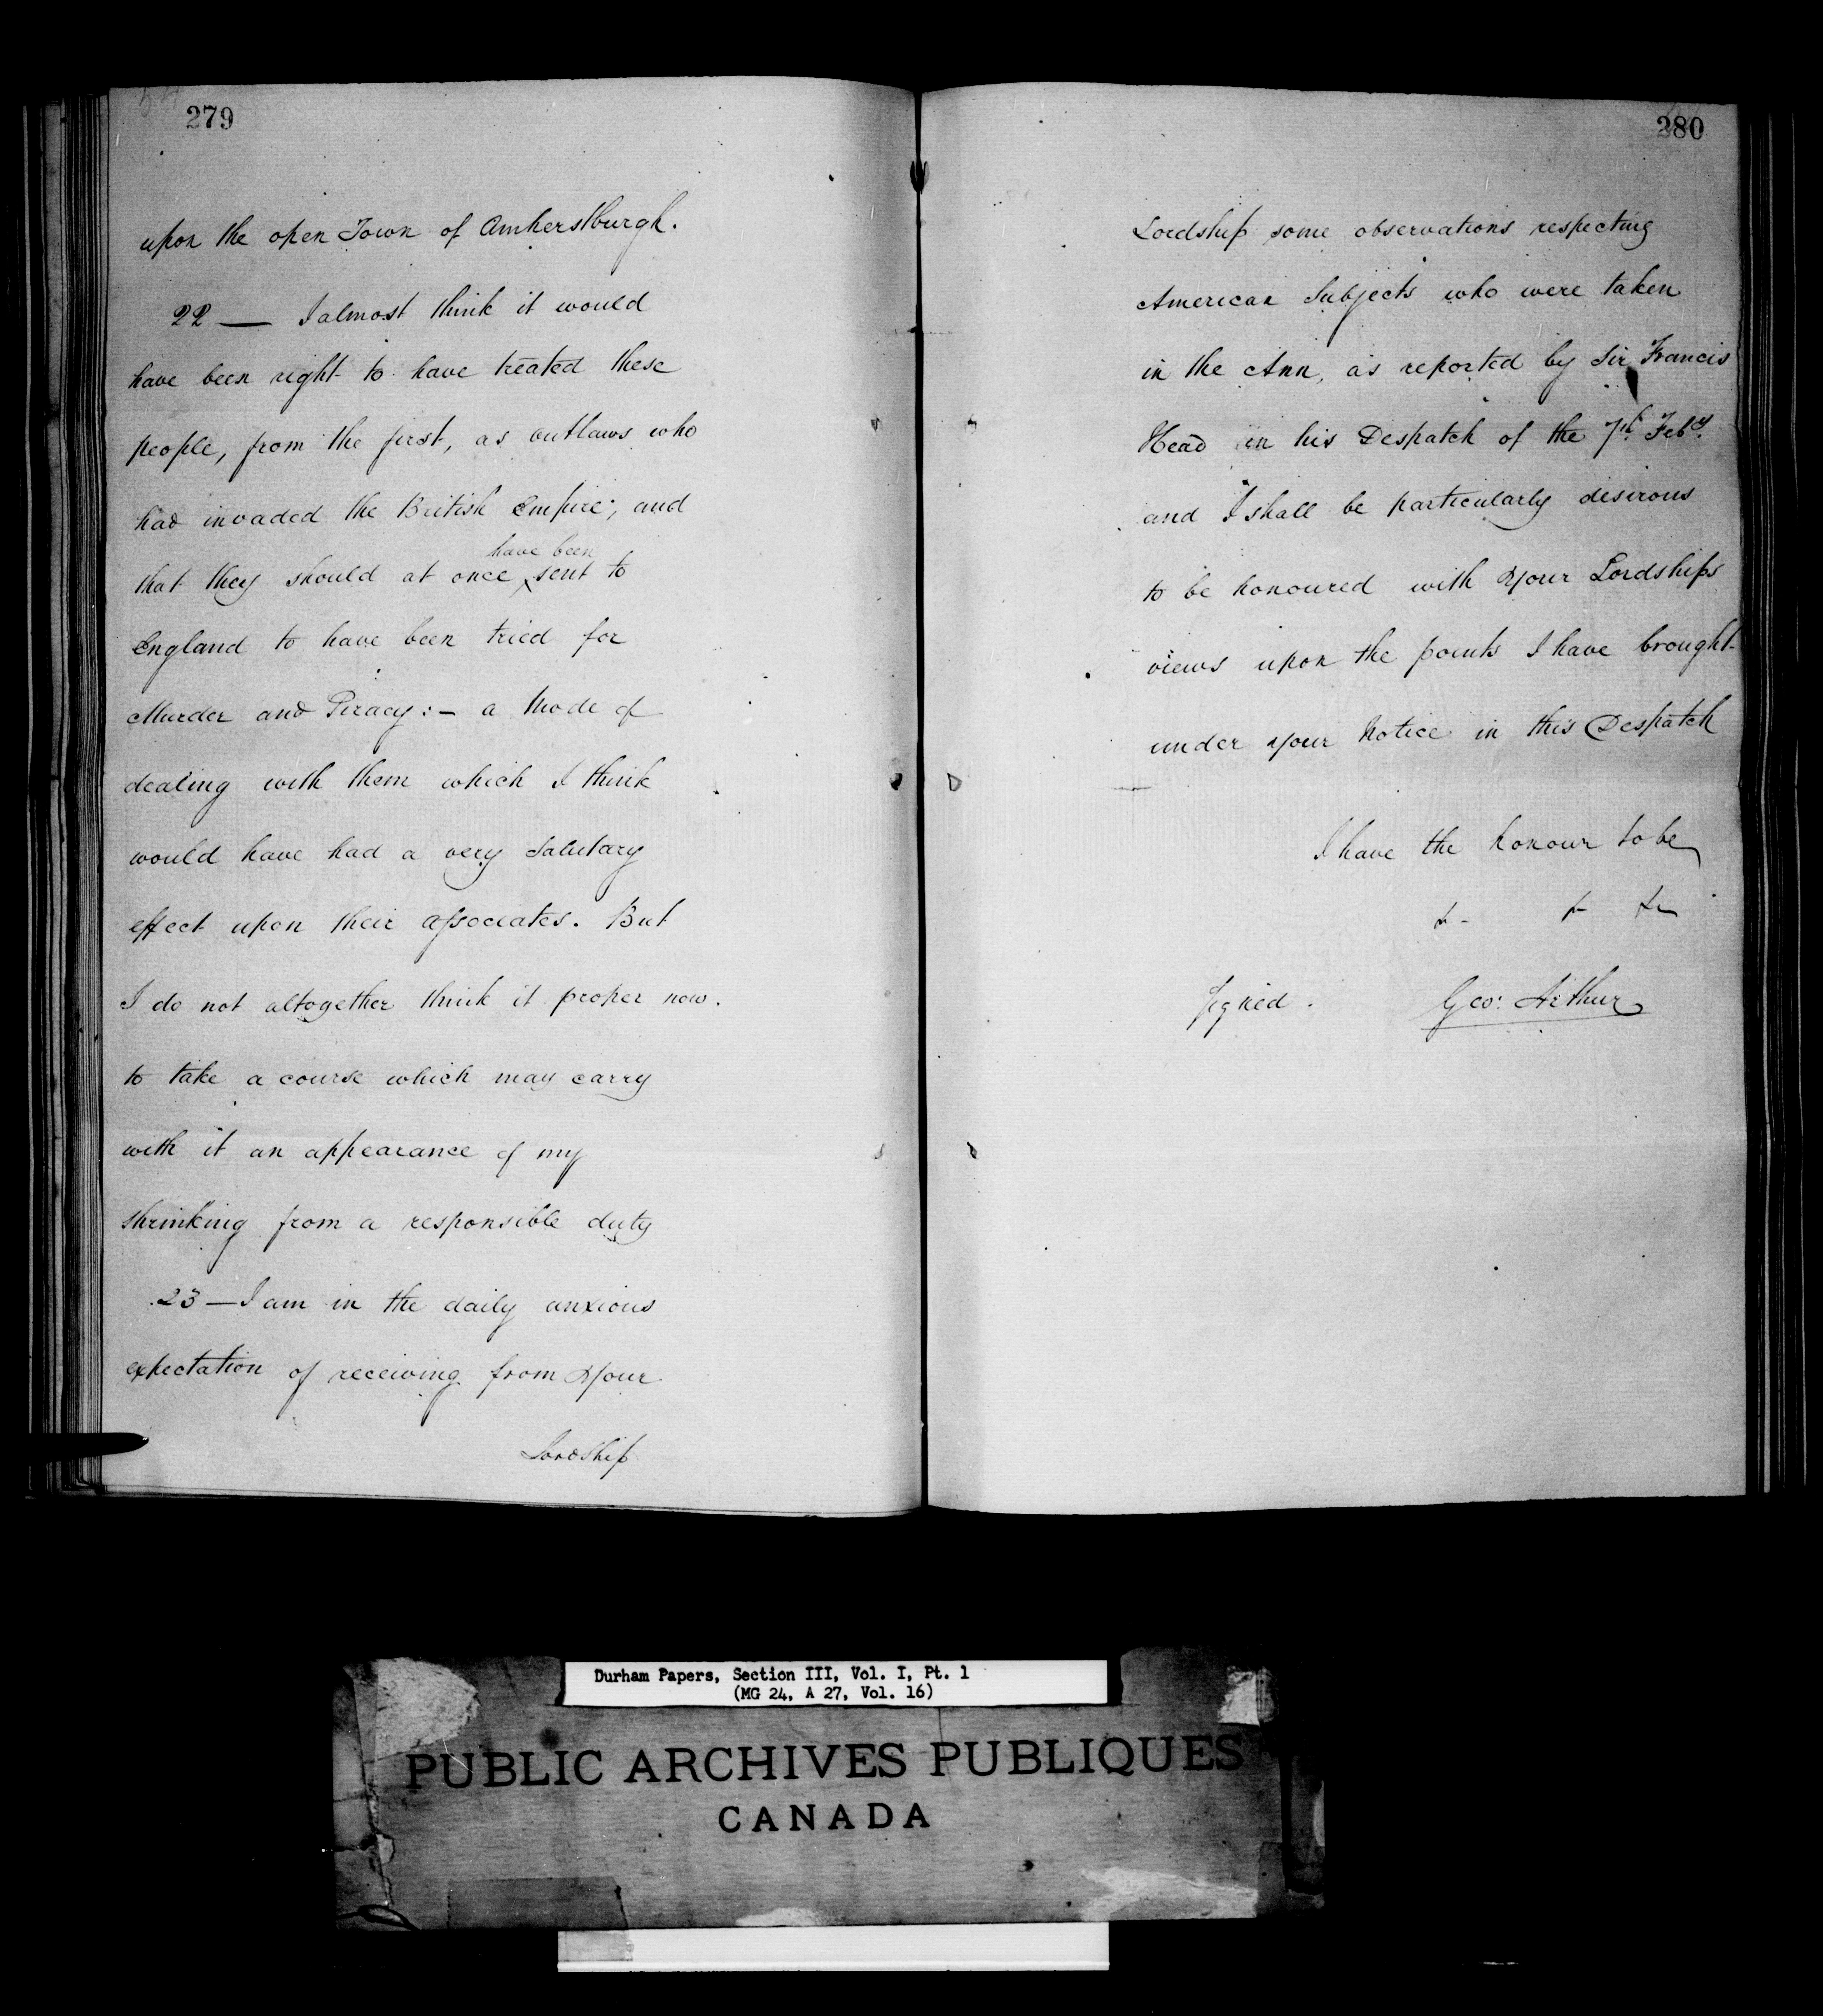 279
upon the open Town of Amherstburgh.
22 — I almost think it would
have been right to have treated these
people, from the first, as outlaws who
had invaded the British Empire; and
have been
that they should at once sent to
England to have been tried for
Murder and Piracy: – a Mode of
dealing with them which I think
would have had a very Salutary
effect upon their associates. But
I do not altogether think it proper now.
to take a course which may carry
with it an appearance of my
shrinking from a responsible duty
23 — I am in the daily anxious
expectation of receiving from Your
Lordship
280
Lordship some observations respecting
American Subjects who were taken
in the Ann, as reported by Sir Francis
Head in his Despatch of the 7th Feby.
and I shall be particularly desirous
to be honoured with Your Lordships
views upon the points I have brought
under your Notice in this Despatch
I have the honour to be
&- &- &c
Signed. Geo: Arthur
Durham Papers, Section III, Vol. I, Pt. 1
(MG 24, A 27, Vol. 16)
PUBLIC ARCHIVES PUBLIQUES
CANADA